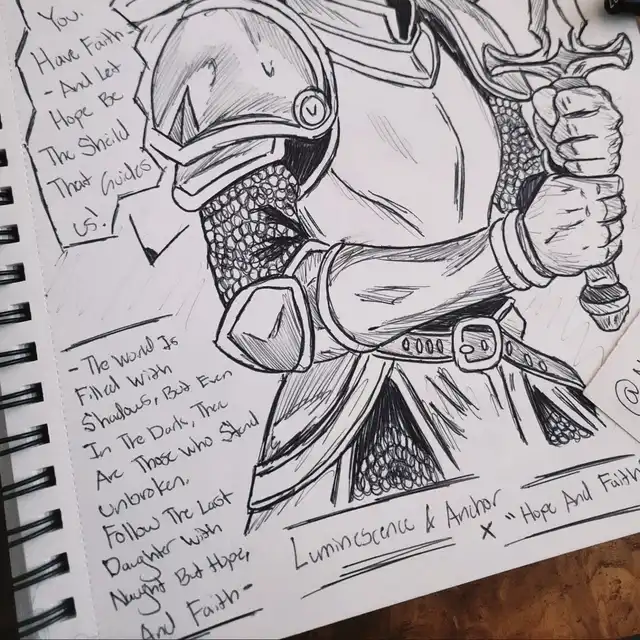 You.
Have Faith
- And Let
Hope Be
The Sheild
That Guides
us!
- The World Is
Filled With
Shadows, But Even
In The Dark, Thee
Are Those Who Stand
Unbroken.
Follow The Last
Daughter With
Naught But Hope,
And Faith -
Luminescence & Anchor
x "Hope And Faith"
@